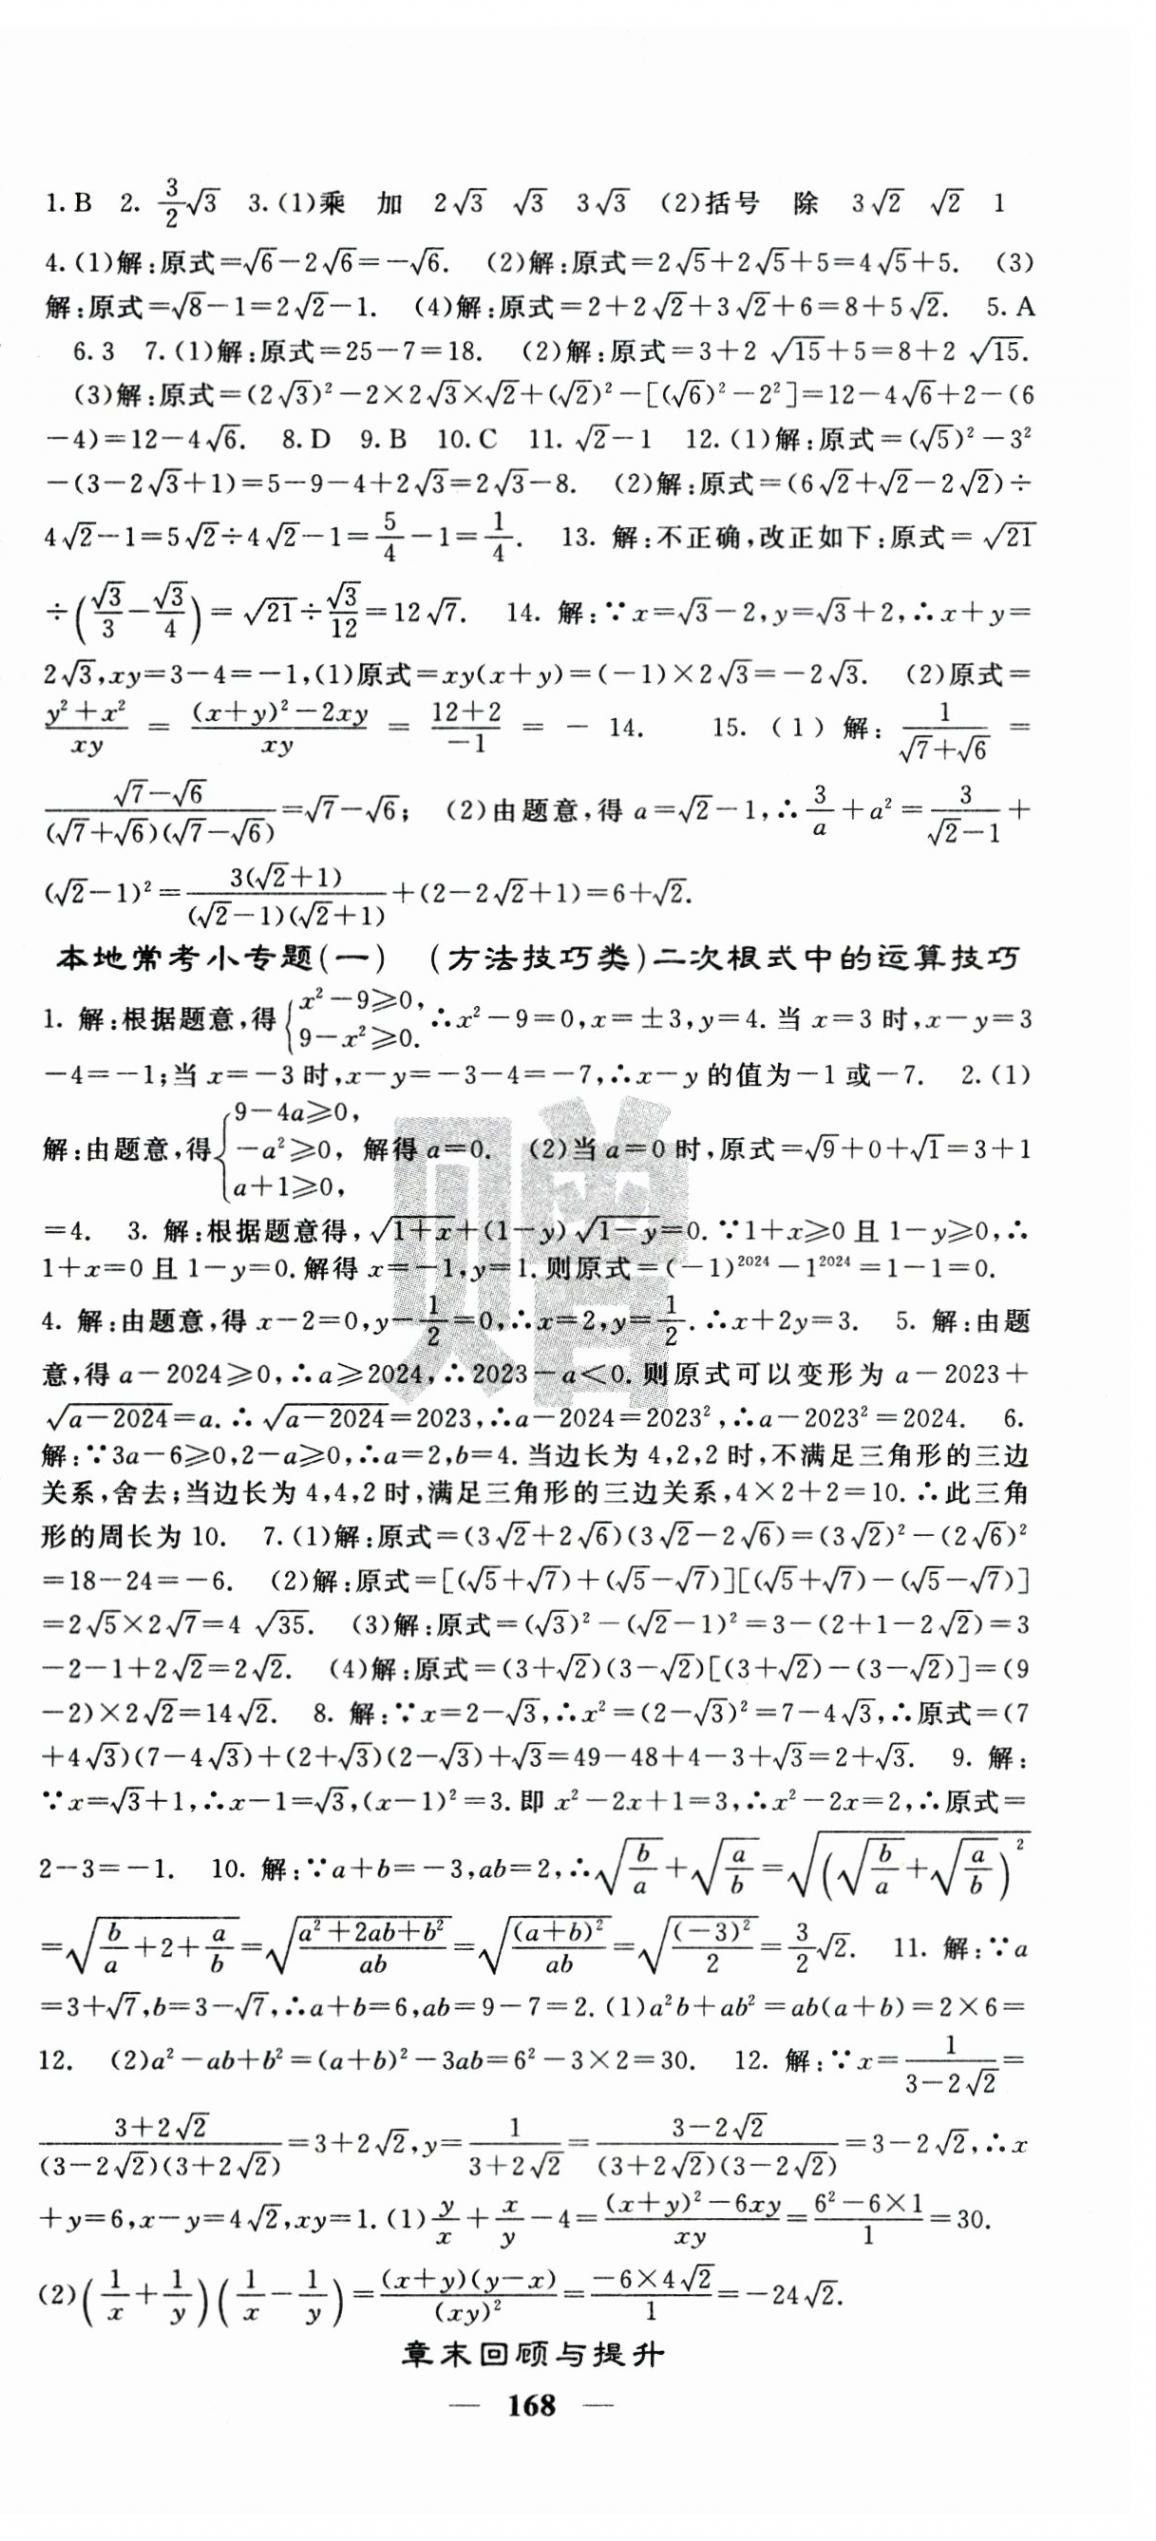 1.B 2. 3/2√3 3.(1)乘 加 2√3 √3 3√3 (2)括号 除 3√2 √2 1
4.(1)解:原式=√6-2√6=-√6. (2)解:原式=2√5+2√5+5=4√5+5. (3)
解:原式=√8-1=2√2-1. (4)解:原式=2+2√2+3√2+6=8+5√2. 5.A
6.3 7.(1)解:原式=25-7=18. (2)解:原式=3+2√15+5=8+2√15.
(3)解:原式=(2√3)²-2×2√3×√2+(√2)²-[(√6)²-2²]=12-4√6+2-(6
-4)=12-4√6. 8.D 9.B 10.C 11.√2-1 12.(1)解:原式=(√5)²-3²
-(3-2√3+1)=5-9-4+2√3=2√3-8. (2)解:原式=(6√2+√2-2√2)÷
4√2-1=5√2÷4√2-1=5/4-1=1/4. 13. 解:不正确,改正如下:原式=√21
÷(√3/3-√3/4)=√21÷√3/12=12√7. 14. 解:∵x=√3-2,y=√3+2,∴x+y=
2√3,xy=3-4=-1,(1)原式=xy(x+y)=(-1)×2√3=-2√3. (2)原式=
(y²+x²)/xy=((x+y)²-2xy)/xy=(12+2)/(-1)=-14. 15.(1)解:1/(√7+√6)=
(√7-√6)/((√7+√6)(√7-√6))=√7-√6; (2)由题意,得a=√2-1,∴3/a+a²=3/(√2-1)+
(√2-1)²=3(√2+1)/((√2-1)(√2+1))+(2-2√2+1)=6+√2.
本地常考小专题(一) (方法技巧类)二次根式中的运算技巧
1. 解:根据题意,得{x²-9≥0, 9-x²≥0. ∴x²-9=0,x=±3,y=4.当x=3时,x-y=3
-4=-1;当x=-3时,x-y=-3-4=-7,∴x-y的值为-1或-7. 2.(1)
解:由题意,得{9-4a≥0, -a²≥0, a+1≥0, 解得a=0. (2)当a=0时,原式=√9+0+√1=3+1
=4. 3. 解:根据题意得,√(1+x)+(1-y)√(1-y)=0.∵1+x≥0且1-y≥0,∴
1+x=0且1-y=0.解得x=-1,y=1.则原式=(-1)²⁰²⁴-1²⁰²⁴=1-1=0.
4. 解:由题意,得x-2=0,y-1/2=0,∴x=2,y=1/2.∴x+2y=3. 5. 解:由题
意,得a-2024≥0,∴a≥2024,∴2023-a<0.则原式可以变形为a-2023+
√(a-2024)=a.∴√(a-2024)=2023,∴a-2024=2023²,∴a-2023²=2024. 6.
解:∵3a-6≥0,2-a≥0,∴a=2,b=4.当边长为4,2,2时,不满足三角形的三边
关系,舍去;当边长为4,4,2时,满足三角形的三边关系,4×2+2=10.∴此三角
形的周长为10. 7.(1)解:原式=(3√2+2√6)(3√2-2√6)=(3√2)²-(2√6)²
=18-24=-6. (2)解:原式=[(√5+√7)+(√5-√7)][(√5+√7)-(√5-√7)]
=2√5×2√7=4√35. (3)解:原式=(√3)²-(√2-1)²=3-(2+1-2√2)=3
-2-1+2√2=2√2. (4)解:原式=(3+√2)(3-√2)[(3+√2)-(3-√2)]=(9
-2)×2√2=14√2. 8. 解:∵x=2-√3,∴x²=(2-√3)²=7-4√3,∴原式=(7
+4√3)(7-4√3)+(2+√3)(2-√3)+√3=49-48+4-3+√3=2+√3. 9. 解:
∵x=√3+1,∴x-1=√3,(x-1)²=3.即x²-2x+1=3,∴x²-2x=2,∴原式=
2-3=-1. 10. 解:∵a+b=-3,ab=2,∴√(b/a)+√(a/b)=√((√(b/a)+√(a/b))²)
=√(b/a+2+a/b)=√((a²+2ab+b²)/ab)=√((a+b)²/ab)=√((-3)²/2)=3/2√2. 11. 解:∵a
=3+√7,b=3-√7,∴a+b=6,ab=9-7=2.(1)a²b+ab²=ab(a+b)=2×6=
12. (2)a²-ab+b²=(a+b)²-3ab=6²-3×2=30. 12. 解:∵x=1/(3-2√2)=
(3+2√2)/((3-2√2)(3+2√2))=3+2√2,y=1/(3+2√2)=(3-2√2)/((3+2√2)(3-2√2))=3-2√2,∴x
+y=6,x-y=4√2,xy=1.(1)y/x+x/y-4=((x+y)²-6xy)/xy=(6²-6×1)/1=30.
(2)(1/x+1/y)(1/x-1/y)=(x+y)(y-x)/(xy)²=(-6×4√2)/1=-24√2.
章末回顾与提升
— 168 —
赠